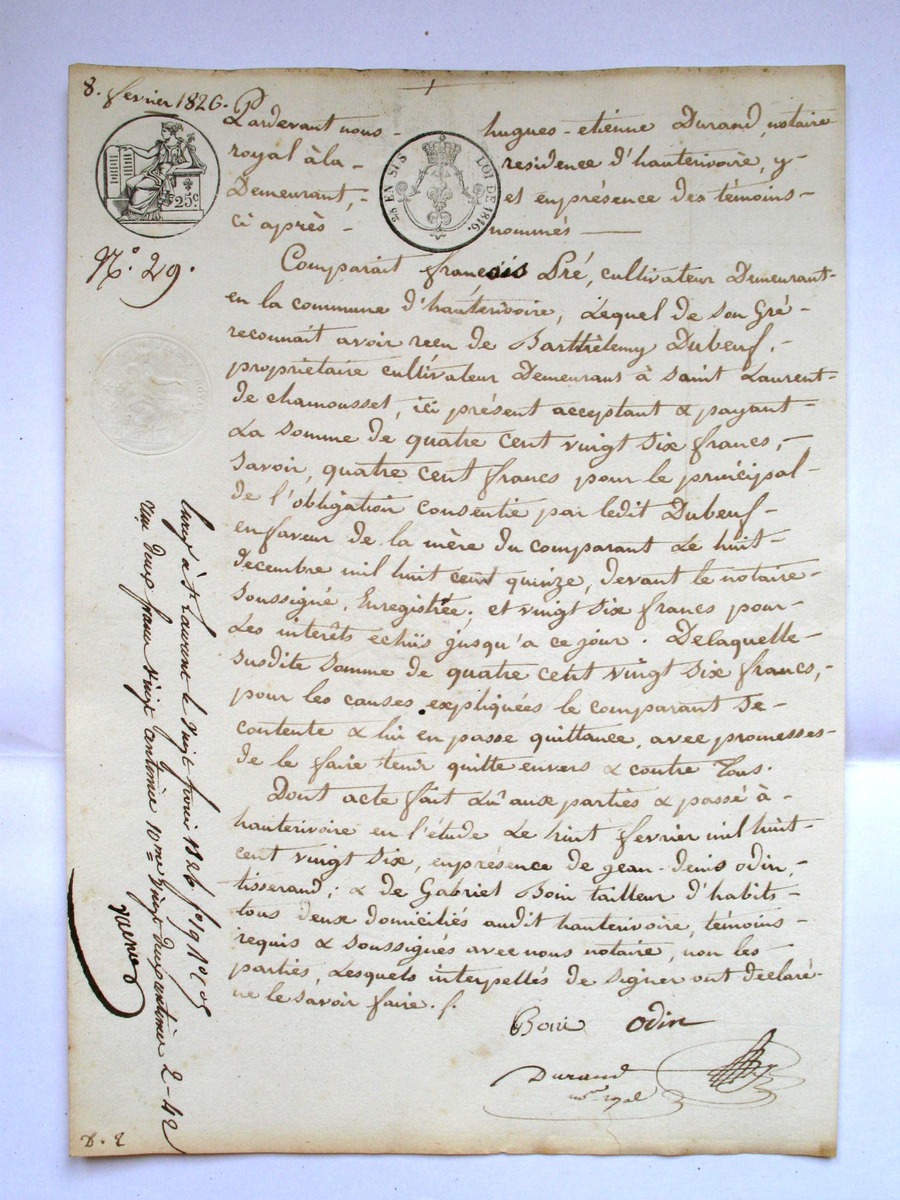 8. fevrier 1826.
Pardevant nous - hugues - etienne Durand, notaire
royal à la - residence d'hauterivoire, y -
Demeurant, - et enprésence des témoins -
ci après - nommés —
25 EN SUS LOI DE 1816.
25c
N.o 29.
Comparait francois Pré, cultivateur Demeurant -
en la commune d'hauterivoire, Lequel de son Gré -
reconnait avoir recu de Barthélemy Dubeuf, -
propriétaire cultivateur Demeurant à saint Laurent -
de chamousset, ici présent acceptant & payant -
La somme de quatre cent vingt six francs, -
savoir, quatre cent francs pour le principal -
de l'obligation consentie par ledit Dubeuf -
en faveur de la mère du comparant Le huit -
decembre mil huit cent quinze, devant le notaire -
soussigné, Enregistrée; et vingt six francs pour -
Les interêts echüs jusqu'a ce jour. Delaquelle -
susdite somme de quatre cent vingt six francs, -
pour les causes expliquées le comparant se -
contente & lui en passe quittance, avec promesses -
de le faire tenir quitte envers & contre Tous.
Dont acte fait Lû aux parties & passé à -
hauterivoire en l'étude Le huit fevrier mil huit -
cent vingt six, enprésence de jean - denis odin,
tisserand; & de Gabriel Boin tailleur d'habits -
tous deux domiciliés audit hauterivoire, témoins -
requis & soussignés avec nous notaire, non les
parties, Lesquels interpellés de signer ont déclaré -
ne le savoir faire. /.
Boin odin
Durand
nre royal
Enregé à St Laurent le vingt fevrier 1826 fo 91
deux francs vingt centimes 10me vingt deux centimes 2 - 42